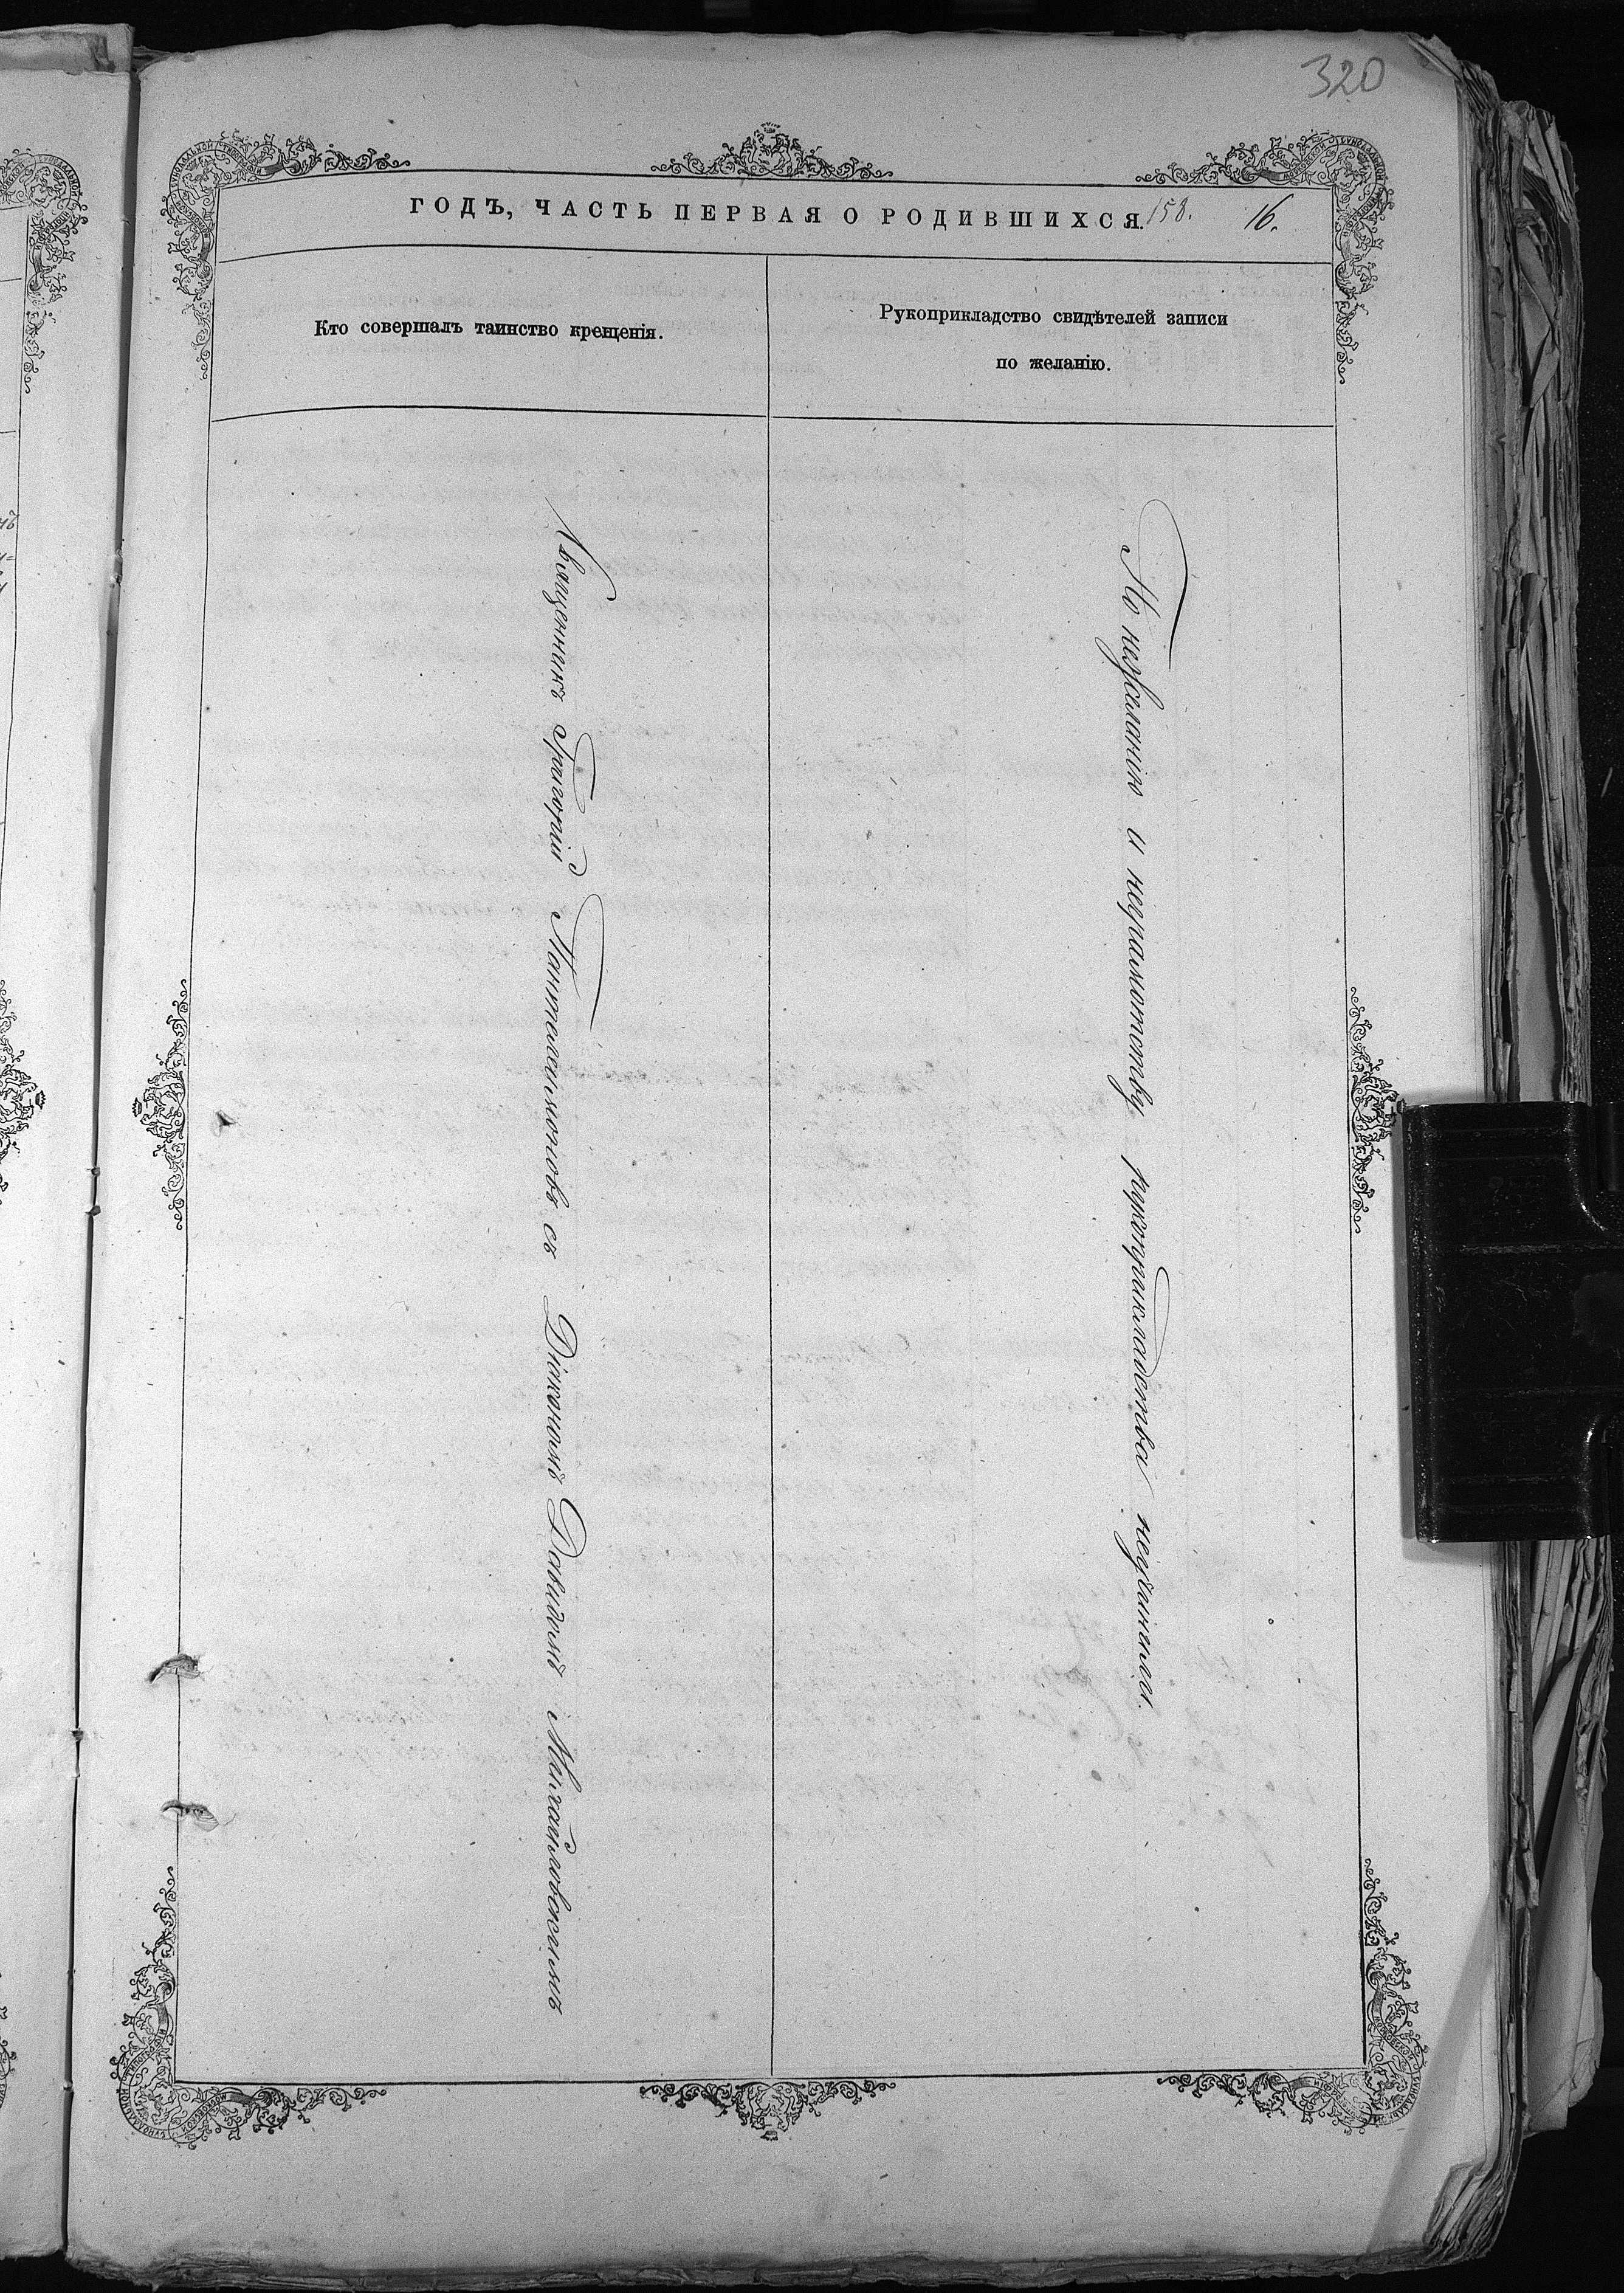 320
ГОДЪ, ЧАСТЬ ПЕРВАЯ О РОДИВШИХСЯ. 158. 16.
Кто совершалъ таинство крещенія.
Рукоприкладство свидѣтелей записи
по желанію.
Священникъ Григорій Пантелеимоновъ съ Діакономъ Давидомъ Михайловскимъ
По нежеланію и неграмотству рукоприкладства неучинили.